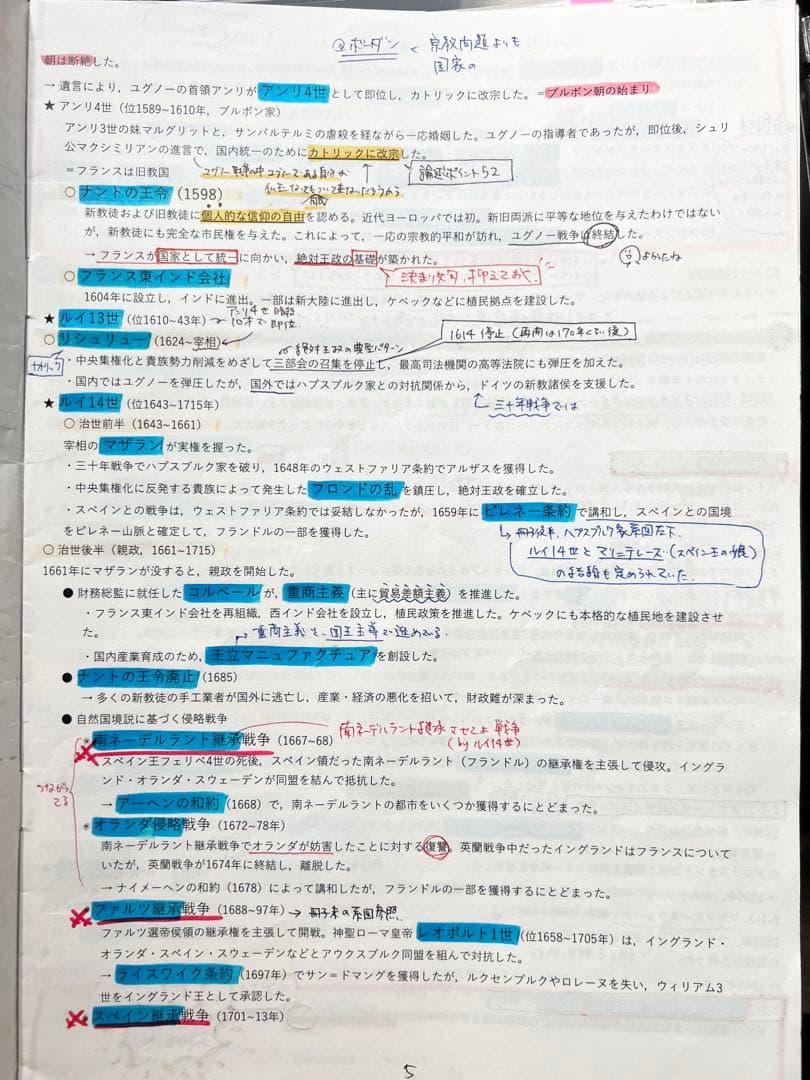 ⑨ボーダン < 宗教問題よりも
国家の
朝は断絶した。
→ 遺言により，ユグノーの首領アンリがアンリ4世として即位し，カトリックに改宗した。＝ブルボン朝の始まり
★ アンリ4世（位1589~1610年，ブルボン家）
アンリ3世の妹マルグリットと，サンバルテルミの虐殺を経ながら一応婚姻した。ユグノーの指導者であったが，即位後，シュリ
公マクシミリアンの進言で，国内統一のためにカトリックに改宗した。
＝フランスは旧教国
論述ポイント52
○ ナントの王令（1598）
新教徒および旧教徒に個人的な信仰の自由を認める。近代ヨーロッパでは初。新旧両派に平等な地位を与えたわけではない
が，新教徒にも完全な市民権を与えた。これによって，一応の宗教的平和が訪れ，ユグノー戦争は終結した。
よかたね
→ フランスが国家として統一に向かい，絶対王政の基礎が築かれた。
決まり文句，抑えておく。
○ フランス東インド会社
1604年に設立し，インドに進出。一部は新大陸に進出し，ケベックなどに植民拠点を建設した。
★ ルイ13世（位1610~43年）
アンリ4世 暗殺
で即位
1614 停止（再開は170年くらい後）
○ リシュリュー（1624~宰相）
絶対王政の典型パターン
カトリック
・中央集権化と貴族勢力削減をめざして三部会の召集を停止し，最高司法機関の高等法院にも弾圧を加えた。
・国内ではユグノーを弾圧したが，国外ではハプスブルク家との対抗関係から，ドイツの新教諸侯を支援した。
三十年戦争では
★ ルイ14世（位1643~1715年）
○ 治世前半（1643~1661）
宰相のマザランが実権を握った。
・三十年戦争でハプスブルク家を破り，1648年のウェストファリア条約でアルザスを獲得した。
・中央集権化に反発する貴族によって発生したフロンドの乱を鎮圧し，絶対王政を確立した。
・スペインとの戦争は，ウェストファリア条約では妥結しなかったが，1659年にピレネー条約で講和し，スペインとの国境
をピレネー山脈と確定して，フランドルの一部を獲得した。
ハプスブルク家系図左下.
ルイ14世とマリ=テレーズ（スペイン王の娘）
の結婚も定められていた.
○ 治世後半（親政，1661~1715）
1661年にマザランが没すると，親政を開始した。
● 財務総監に就任したコルベールが，重商主義（主に貿易差額主義）を推進した。
・フランス東インド会社を再組織，西インド会社を設立し，植民政策を推進した。ケベックにも本格的な植民地を建設させ
た。
重商主義を，国王主導で進めている.
・国内産業育成のため，王立マニュファクチュアを創設した。
● ナントの王令廃止（1685）
→ 多くの新教徒の手工業者が国外に逃亡し，産業・経済の悪化を招いて，財政難が深まった。
● 自然国境説に基づく侵略戦争
＊南ネーデルラント継承戦争（1667~68）
南ネーデルラント継承させてよ戦争
（by ルイ14世）
つながってる
スペイン王フェリペ4世の死後，スペイン領だった南ネーデルラント（フランドル）の継承権を主張して侵攻。イングラ
ンド・オランダ・スウェーデンが同盟を結んで抵抗した。
→ アーヘンの和約（1668）で，南ネーデルラントの都市をいくつか獲得するにとどまった。
＊オランダ侵略戦争（1672~78年）
南ネーデルラント継承戦争でオランダが妨害したことに対する復讐。英蘭戦争中だったイングランドはフランスについて
いたが，英蘭戦争が1674年に終結し，離脱した。
→ ナイメーヘンの和約（1678）によって講和したが，フランドルの一部を獲得するにとどまった。
＊ファルツ継承戦争（1688~97年）
ファルツ選帝侯領の継承権を主張して開戦。神聖ローマ皇帝レオポルト1世（位1658~1705年）は，イングランド・
オランダ・スペイン・スウェーデンなどとアウクスブルク同盟を組んで対抗した。
→ ライスワイク条約（1697年）でサン＝ドマングを獲得したが，ルクセンブルクやロレーヌを失い，ウィリアム3
世をイングランド王として承認した。
＊スペイン継承戦争（1701~13年）
5